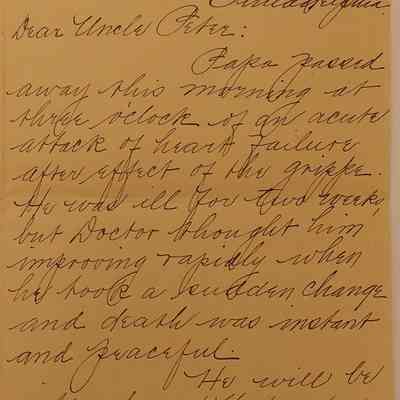 Philadelphia.
Dear Uncle Peter:
Papa passed
away this morning at
three o'clock of an acute
attack of heart failure
after effect of the grippe.
He was ill for two weeks,
but Doctor thought him
improving rapidly when
he took a sudden change
and death was instant
and peaceful.
He will be